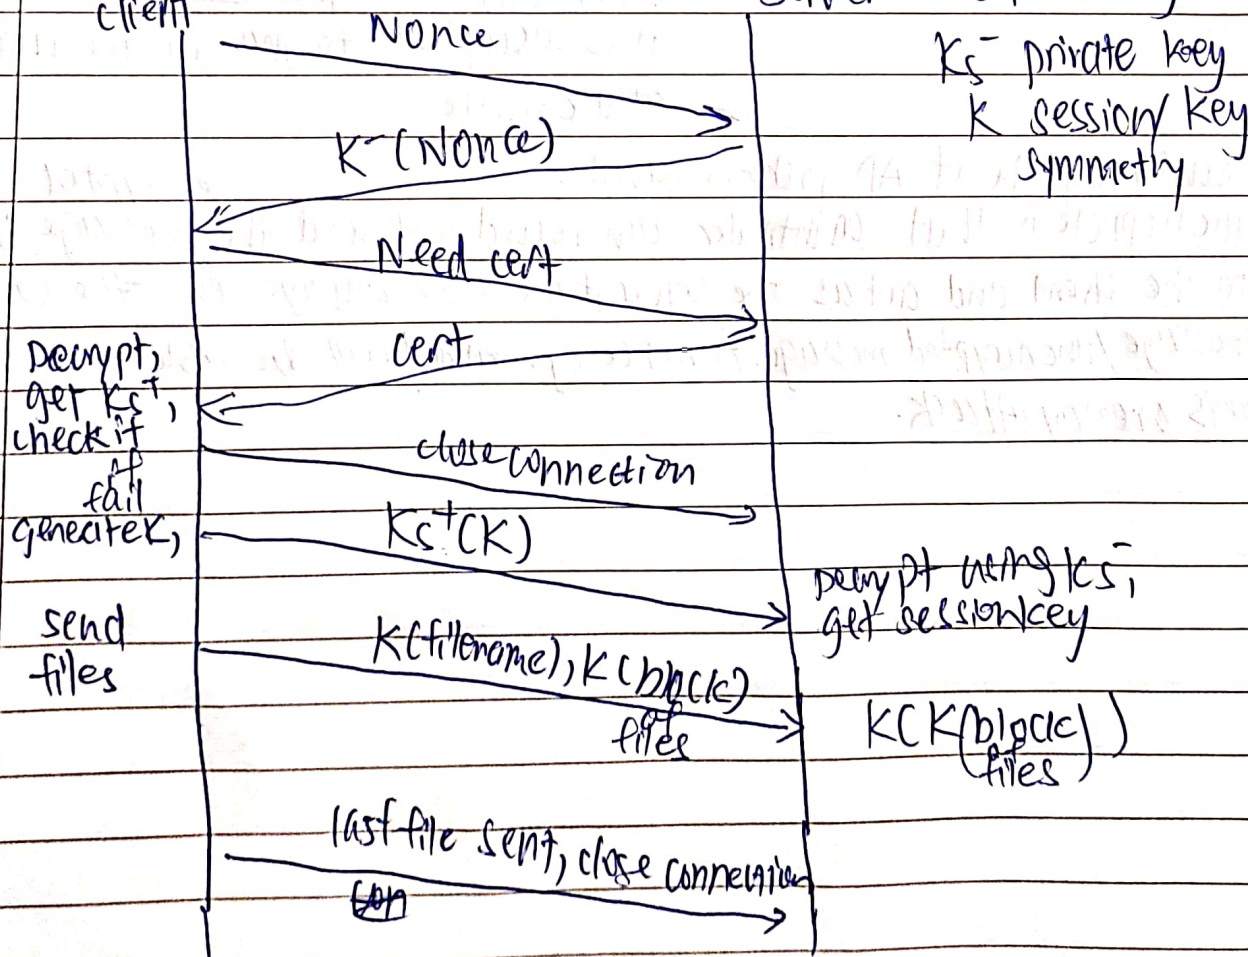 client
Nonce
Ks⁻ private key
K session key
symmethy
K⁻(Nonce)
Need cert
cert
Decrypt,
get Ks⁺,
check it
if
fail
close connection
generate K,
Ks⁺(K)
Decrypt using Ks⁻,
get session key
send
files
K(filename), K(block)
of
files
K(K(block))
of
files
last file sent, close connection
con